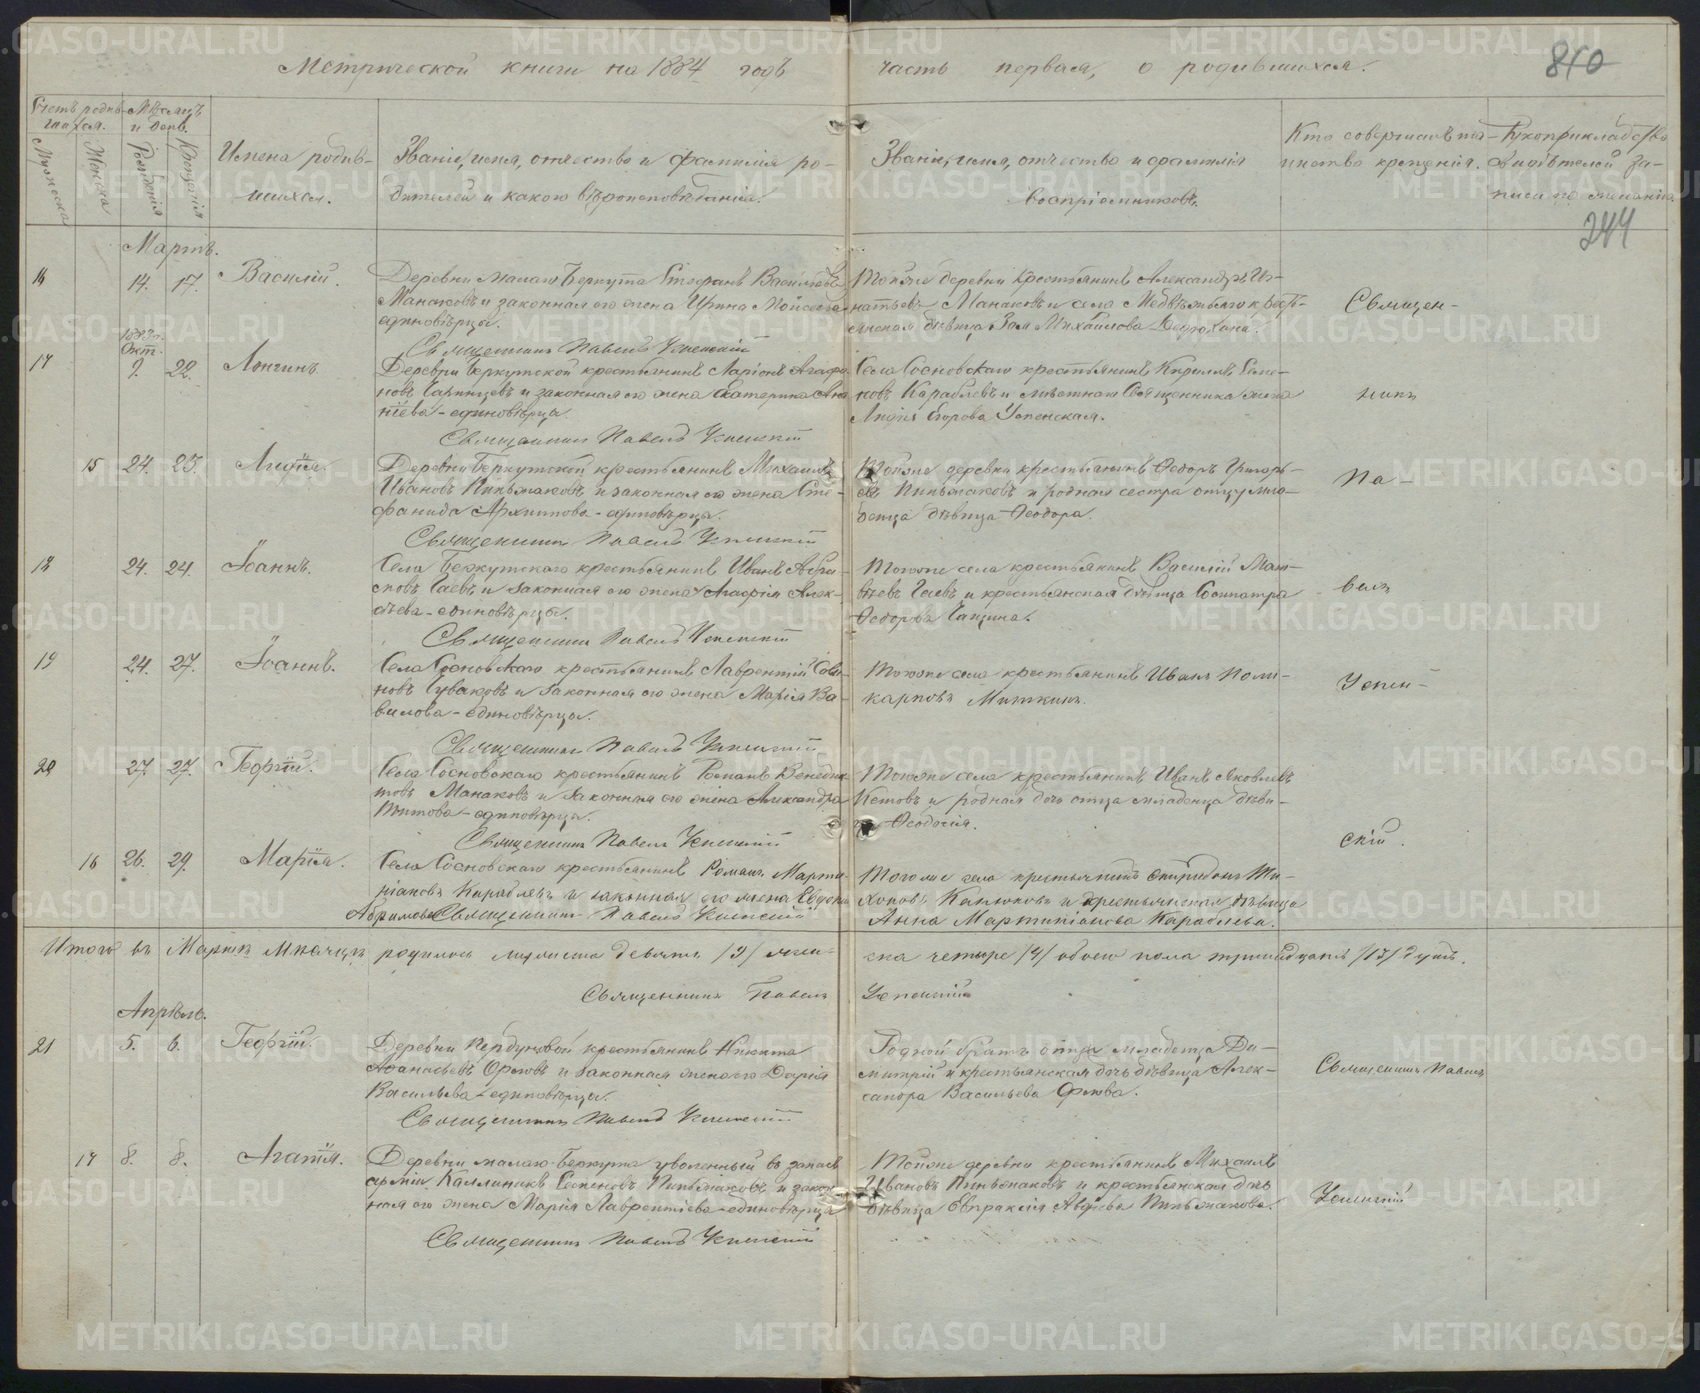 Метрической книги на 1884 годъ часть первая, о родившихся.
810
244
Счетъ родив-
шихся.
Мѣсяцъ
и день.
Мужеска
Женска
Рожденія
Крещенія
Имена родив-
шихся.
Званіе, имя, отчество и фамилія ро-
дителей и какого вѣроисповѣданія.
Званіе, имя, отчество и фамилія
воспріемниковъ.
Кто совершалъ та-
инство крещенія.
Рукоприкладство
свидѣтелей за-
писи по желанію.
Мартъ.
16 14. 17. Василій.
Деревни малаго Беркута Стефанъ Васильевъ
Манаковъ и законная его жена Ирина Мойсеева
единовѣрцы.
Священникъ Павелъ Успенскій
Тойже деревни крестьянинъ Александръ Иг-
натьевъ Манаковъ и села Медвѣжьяго крест-
янская дѣвица Зоя Михайлова
Священ-
1883 г.
Окт.
17 9. 22. Лонгинъ
Деревни Беркутской крестьянинъ Ларіонъ Агафо-
новъ и законная его жена Екатерина Ана
ніева - единовѣрцы.
Священникъ Павелъ Успенскій
Села Сосновскаго крестьянинъ Кириллъ Семе-
новъ Караблевъ и мѣстнаго Священника жена
Лидія Егорова Успенская.
никъ
15 24. 25. Лидія.
Деревни Беркутской крестьянинъ Михаилъ
Ивановъ Пильмаковъ и законная его жена Сте-
фанида Архипова - единовѣрцы.
Священникъ Павелъ Успенскій
Тойже деревни крестьянинъ Ѳедоръ Григорь-
евъ Пильмаковъ и родная сестра отцу мла-
денца дѣвица Ѳеодора.
Па-
18 24. 24. Іоаннъ.
Села Беркутскаго крестьянинъ Иванъ
Гаевъ и законная его жена Агафія Алек-
сѣева - единовѣрцы.
Священникъ Павелъ Успенскій
Тогоже села крестьянинъ Василій Мат-
вѣевъ Гаевъ и крестьянская дѣвица Сосипатра
Ѳедорова
велъ
19 24. 27. Іоаннъ.
Села Сосновскаго крестьянинъ Лаврентій Сави-
новъ и законная его жена Марія Ва-
вилова - единовѣрцы.
Священникъ Павелъ Успенскій
Тогоже села крестьянинъ Иванъ Поли-
карповъ Миткинъ.
Успен-
20 27. 27. Георгій.
Села Сосновскаго крестьянинъ Романъ Венедик
товъ Манаковъ и законная его жена Александра
Титова - единовѣрцы.
Священникъ Павелъ Успенскій
Тогоже села крестьянинъ Иванъ Яковлевъ
Кетовъ и родная дочь отца младенца дѣви-
ца Ѳеодосія.
скій.
16 26. 29. Марія.
Села Сосновскаго крестьянинъ Романъ Марти-
ніановъ Караблевъ и законная его жена Евдокія
Абрамова Священникъ Павелъ Успенскій
Тогоже села крестьянинъ Спиридонъ Ти-
хоновъ и крестьянская дѣвица
Анна Мартиніанова Караблева.
Итого въ Мартѣ мѣсяцѣ родилось мужеска девять /9/ жен-
ска четыре /4/ обоего пола тринадцать /13/ душъ.
Священникъ Павелъ Успенскій
Апрѣль.
21 5. 6. Георгій.
Деревни крестьянинъ Никита
Аѳанасьевъ Орловъ и законная жена его Дарія
Васильева - единовѣрцы.
Священникъ Павелъ Успенскій
Родной братъ отца младенца Ди-
митрій и крестьянская дочь дѣвица Алек-
сандра Васильева Орлова.
Священникъ Павелъ
17 8. 8. Агапія.
Деревни малаго Беркута уволенный въ запасъ
арміи Каллиникъ Семеновъ Пильмаковъ и закон
ная его жена Марія Лаврентіева - единовѣрцы
Священникъ Павелъ Успенскій
Тойже деревни крестьянинъ Михаилъ
Ивановъ Пильмаковъ и крестьянская дочь
дѣвица Евпраксія Пильмакова.
Успенскій
METRIKI.GASO-URAL.RU